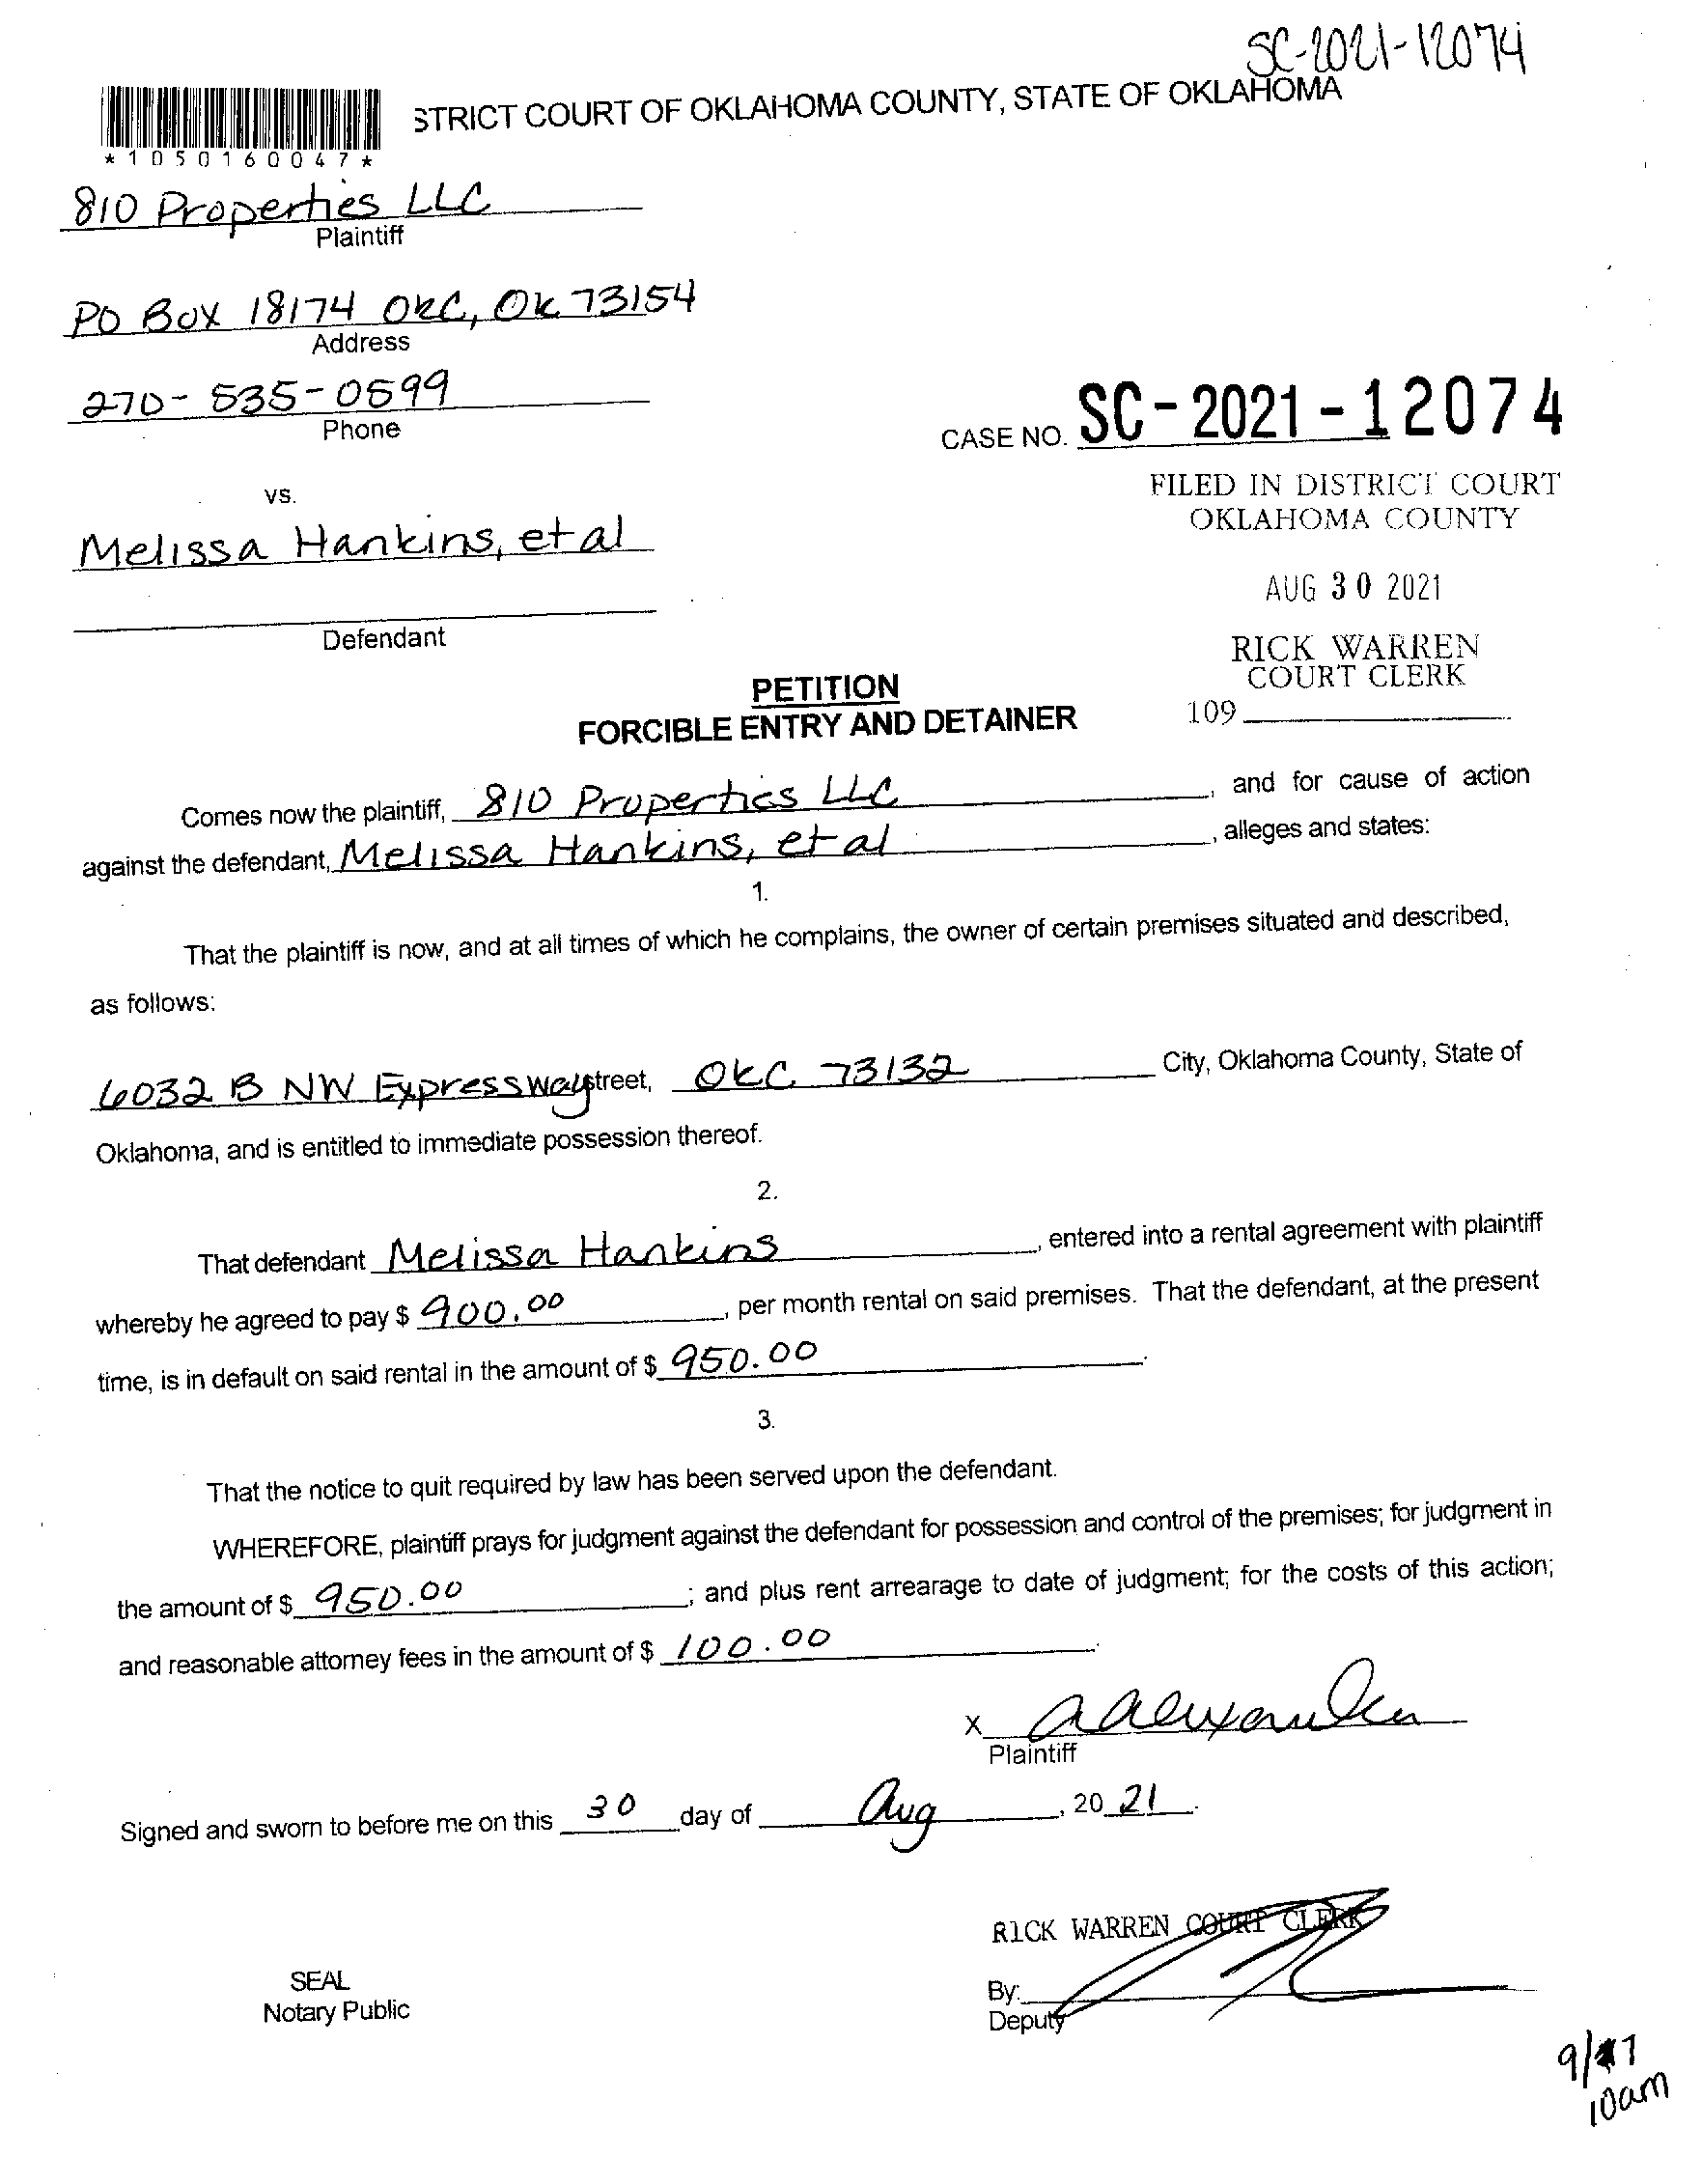 SC-2021-12074
STRICT COURT OF OKLAHOMA COUNTY, STATE OF OKLAHOMA
*1050160047*
810 Properties LLC
Plaintiff
PO Box 18174 OKC, OK 73154
Address
270-535-0599
Phone
CASE NO. SC-2021-12074
FILED IN DISTRICT COURT
OKLAHOMA COUNTY
vs.
Melissa Hankins, et al
AUG 30 2021
Defendant
RICK WARREN
COURT CLERK
109
PETITION
FORCIBLE ENTRY AND DETAINER
Comes now the plaintiff, 810 Properties LLC, and for cause of action
against the defendant, Melissa Hankins, et al, alleges and states:
1.
That the plaintiff is now, and at all times of which he complains, the owner of certain premises situated and described,
as follows:
6032 B NW Expressway street, OKC 73132 City, Oklahoma County, State of
Oklahoma, and is entitled to immediate possession thereof.
2.
That defendant Melissa Hankins, entered into a rental agreement with plaintiff
whereby he agreed to pay $ 900.00, per month rental on said premises. That the defendant, at the present
time, is in default on said rental in the amount of $ 950.00.
3.
That the notice to quit required by law has been served upon the defendant.
WHEREFORE, plaintiff prays for judgment against the defendant for possession and control of the premises; for judgment in
the amount of $ 950.00; and plus rent arrearage to date of judgment; for the costs of this action;
and reasonable attorney fees in the amount of $ 100.00.
x aalexander
Plaintiff
Signed and sworn to before me on this 30 day of Aug, 2021.
RICK WARREN COURT CLERK
SEAL
Notary Public
By:
Deputy
10am